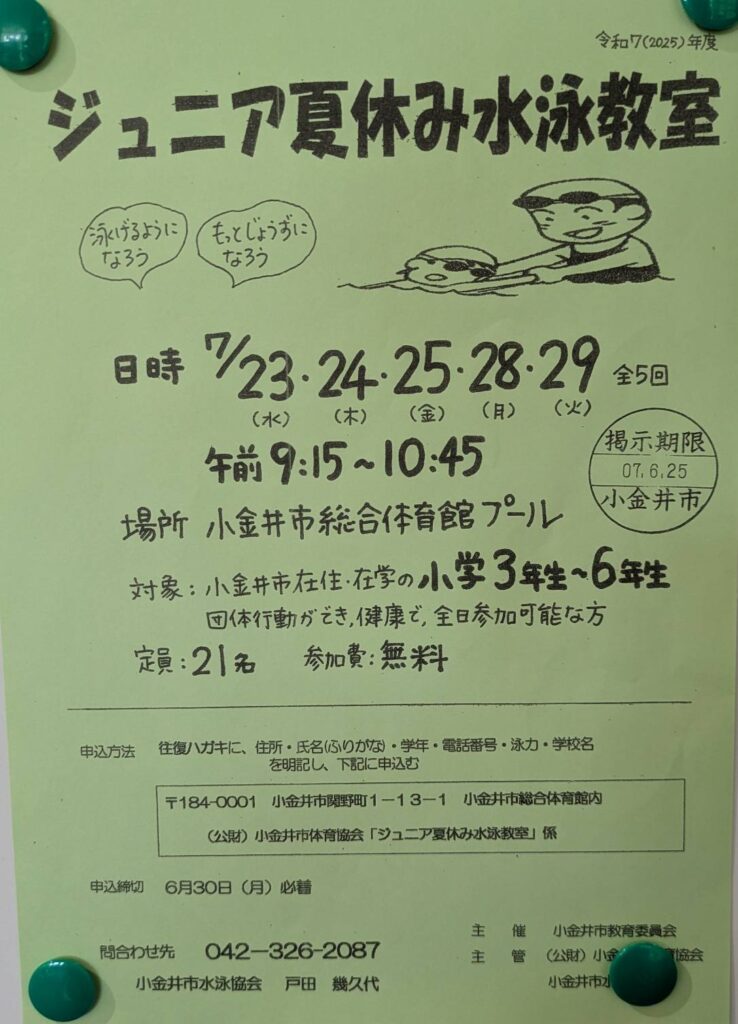 令和7(2025)年度
ジュニア夏休み水泳教室
泳げるように
なろう
もっとじょうずに
なろう
日時 7/23・24・25・28・29 全5回
(水) (木) (金) (月) (火)
午前 9:15~10:45
掲示期限
07.6.25
小金井市
場所 小金井市総合体育館プール
対象: 小金井市在住・在学の小学3年生~6年生
団体行動ができ,健康で,全日参加可能な方
定員:21名 参加費:無料
申込方法 往復ハガキに、住所・氏名(ふりがな)・学年・電話番号・泳力・学校名
を明記し、下記に申込む
〒184-0001 小金井市関野町1-13-1 小金井市総合体育館内
(公財)小金井市体育協会「ジュニア夏休み水泳教室」係
申込締切 6月30日(月)必着
問合わせ先 042-326-2087
小金井市水泳協会 戸田 幾久代
主 催 小金井市教育委員会
主 管 (公財)小金 育協会
小金井市水